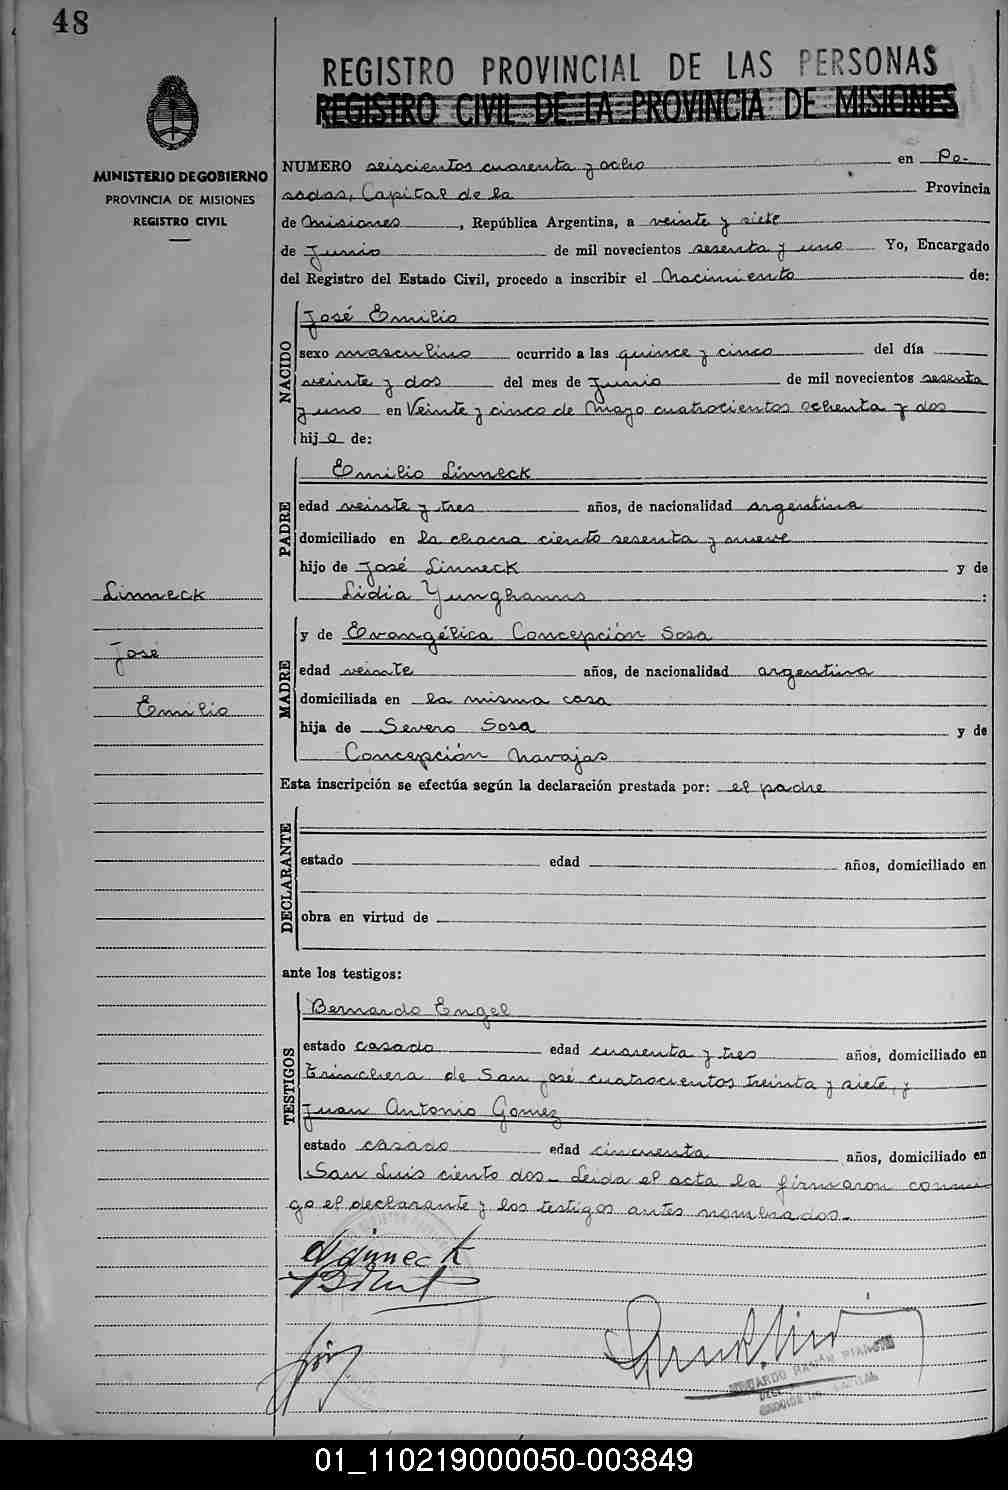 48
REGISTRO PROVINCIAL DE LAS PERSONAS
REGISTRO CIVIL DE LA PROVINCIA DE MISIONES
MINISTERIO DE GOBIERNO
PROVINCIA DE MISIONES
REGISTRO CIVIL
NUMERO seiscientos cuarenta y ocho en Po-
sadas, Capital de la Provincia
de Misiones, República Argentina, a veinte y siete
de Junio de mil novecientos sesenta y uno Yo, Encargado
del Registro del Estado Civil, procedo a inscribir el Nacimiento de:
NACIDO
José Emilio
sexo masculino ocurrido a las quince y cinco del día
veinte y dos del mes de Junio de mil novecientos sesenta
y uno en Veinte y cinco de Mayo cuatrocientos ochenta y dos
hijo de:
PADRE
Emilio Linneck
edad veinte y tres años, de nacionalidad argentina
domiciliado en la chacra ciento sesenta y nueve
hijo de José Linneck y de
Lidia Yunghanns :
Linneck
José
Emilio
MADRE
y de Evangélica Concepción Sosa
edad veinte años, de nacionalidad argentina
domiciliada en la misma casa
hija de Severo Sosa y de
Concepción Navajas
Esta inscripción se efectúa según la declaración prestada por: el padre
DECLARANTE
estado edad años, domiciliado en
obra en virtud de
ante los testigos:
TESTIGOS
Bernardo Engel
estado casado edad cuarenta y tres años, domiciliado en
Trinchera de San José cuatrocientos treinta y siete, y
Juan Antonio Gomez
estado casado edad cincuenta años, domiciliado en
San Luis ciento dos_ Leida el acta la firmaron conmi-
go el declarante y los testigos antes nombrados._
01_110219000050-003849